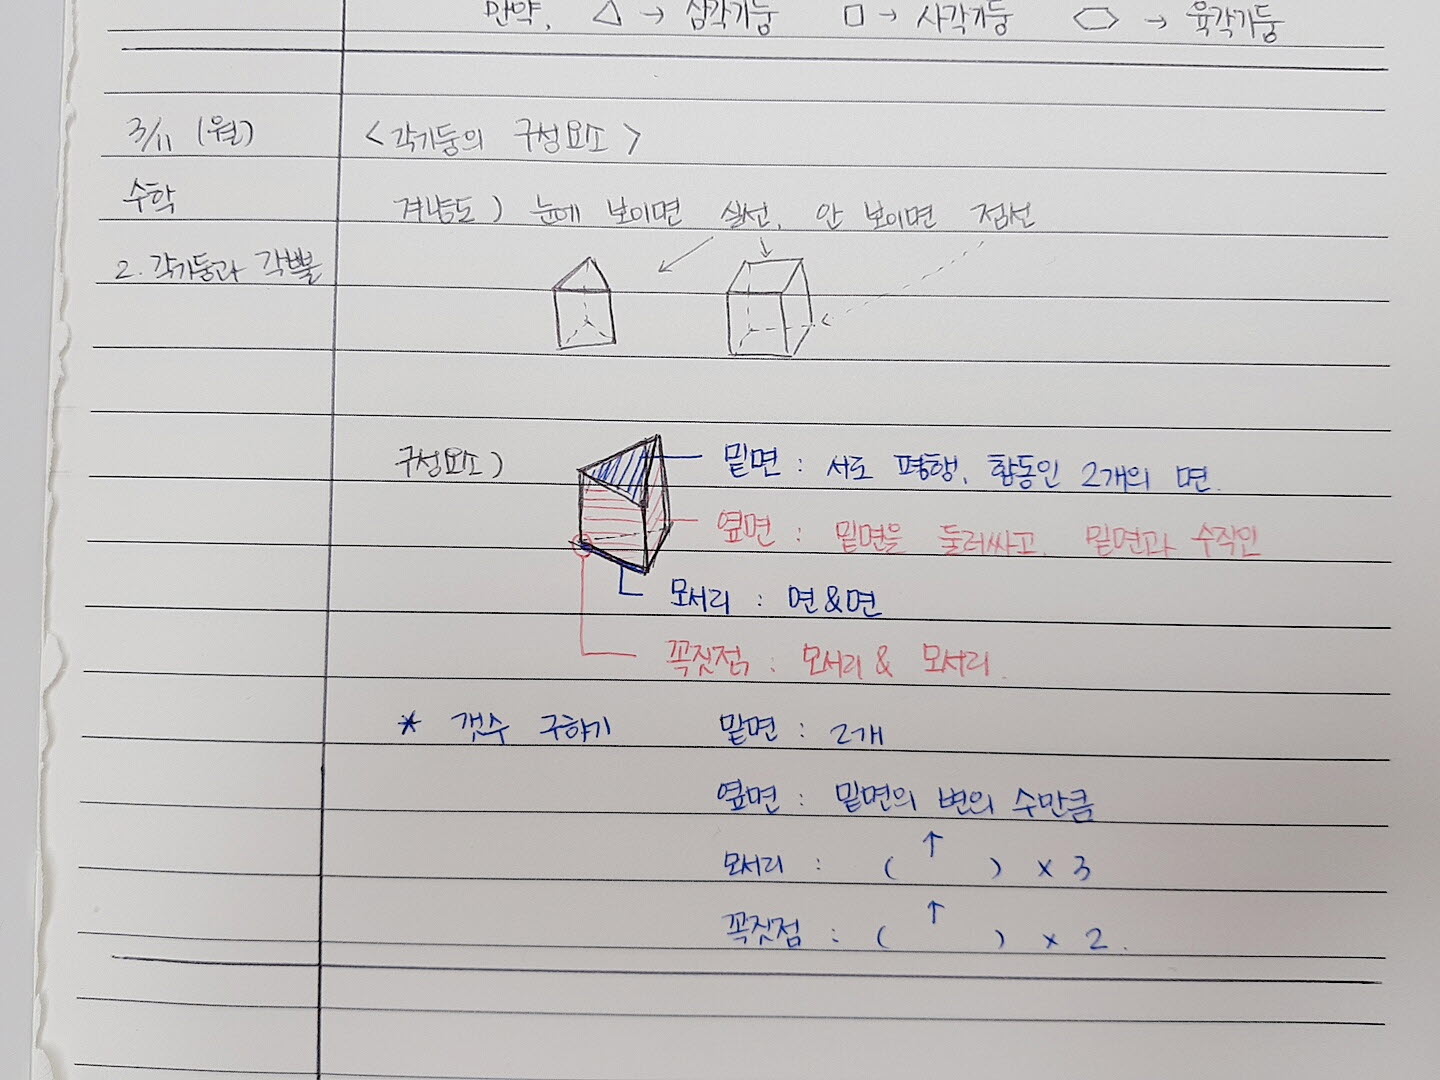 만약, △ → 삼각기둥 □ → 사각기둥 ⬡ → 육각기둥
3/11 (월) <각기둥의 구성요소>
수학 겨냥도) 눈에 보이면 실선, 안 보이면 점선
2. 각기둥과 각뿔
구성요소) 밑면 : 서로 평행, 합동인 2개의 면.
옆면 : 밑면을 둘러싸고, 밑면과 수직인
모서리 : 면&면
꼭짓점 : 모서리 & 모서리.
* 갯수 구하기 밑면 : 2개
옆면 : 밑면의 변의 수만큼
모서리 : ( ↑ ) × 3
꼭짓점 : ( ↑ ) × 2.